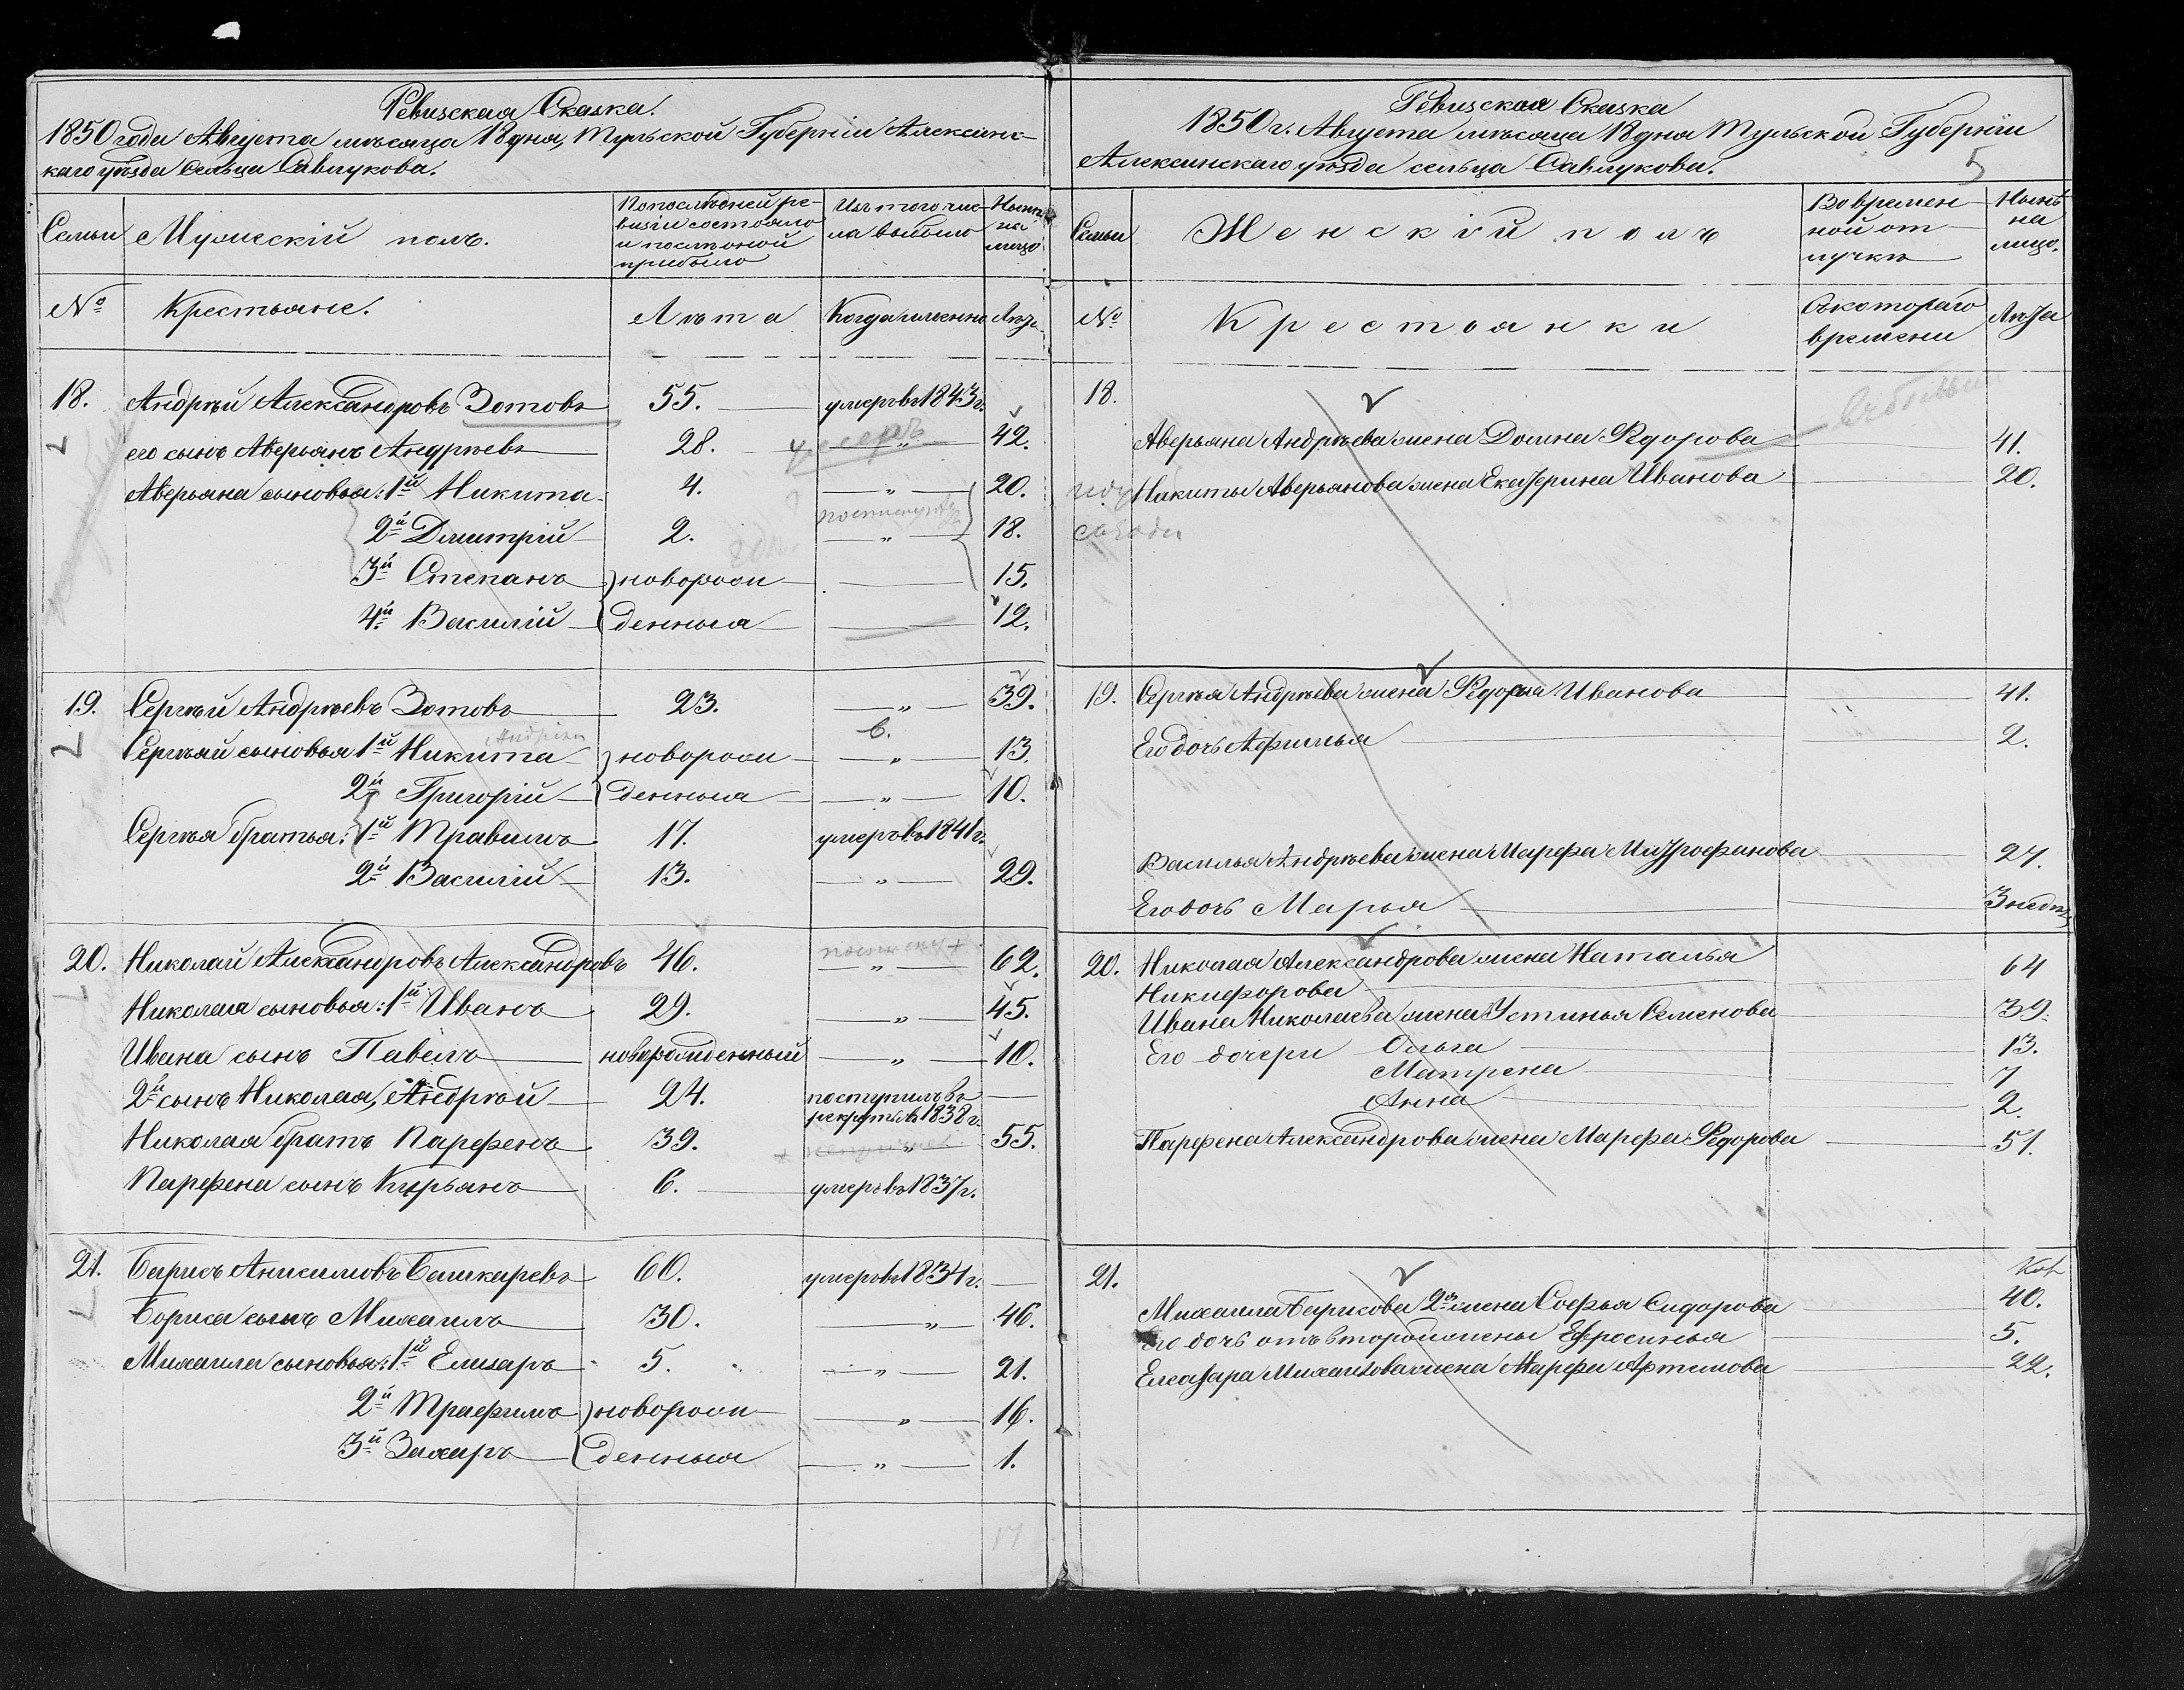 Ревизская Сказка.
1850 года Августа мѣсяца 18 дня, Тульской Губерніи Алексинс-
каго уѣзда сельца Савлукова.
Семьи
Мужескій полъ.
По послѣдней ре-
визіи состояло
и послѣ оной
прибыло
Изъ того чис-
ла выбыло
Нынѣ
на
лицо
№
Крестьяне.
Лѣта
Когда именно
Лѣта
18. Андрѣй Александровъ Зотовъ 55. умеръ въ 1843 г.
его сынъ Аверьянъ Андрѣевъ 28. умеръ „ 42.
Аверьяна сыновья: 1й Никита 4. „ 20.
2й Дмитрій 2. „ 18.
3й Степанъ } новорож 15.
4й Василій { денныя 12.
19. Сергѣй Андрѣевъ Зотовъ 23. „ 39.
Сергѣя сыновья 1й Никита } новорож „ 13
2й Григорій { денныя „ 10.
Сергѣя братья: 1й Травилъ 17. умеръ въ 1841 г.
2й Василій 13. „ 29.
20. Николай Александровъ Александровъ 46. „ 62.
Николая сыновья: 1й Иванъ 29. „ 45.
Ивана сынъ Павелъ новорожденный „ 10.
2й сынъ Николая, Андрѣй 24. поступилъ въ
рекруты въ 1838 г.
Николая братъ Парфенъ 39. „ 55.
Парфена сынъ Курьянъ 6. умеръ въ 1837 г.
21. Борисъ Анисимовъ Башкаревъ 60. умеръ въ 1834 г.
Бориса сынъ Михаилъ 30. „ 46.
Михаила сыновья: 1й Елизаръ 5. „ 21.
2й Трафимъ } новорож „ 16.
3й Захаръ { денныя „ 1.
17
Ревизская Сказка
1850 г. Августа мѣсяца 18 дня Тульской Губерніи
Алексинскаго уѣзда сельца Савлукова.
5
Семьи
Женскій полъ
Во времен
ной от
лучкѣ
Нынѣ
на
лицо.
№
Крестьянки
Съ котораго
времени
Лѣта
18.
Аверьяна Андрѣева жена Домна Ѳедорова 41.
Никиты Аверьянова жена Екатерина Иванова 20.
19. Сергѣя Андрѣева жена Ѳедосья Иванова 41.
Его дочь Афимья 2.
Василья Андрѣева жена Марфа Митрофанова 27.
Его дочь Марья 3 недѣл
20. Николая Александрова жена Наталья 64
Никифорова
Ивана Николаева жена Устинья Семенова 39.
Его дочери Ольга 13.
Матрена 7
Анна 2.
Парфена Александрова жена Марфа Ѳедорова 51.
21.
Михаила Борисова 2я жена Софья Сидорова 40.
Его дочь отъ второй жены Ефросинья 5.
Елеазара Михайлова жена Марфа Артемова 22.